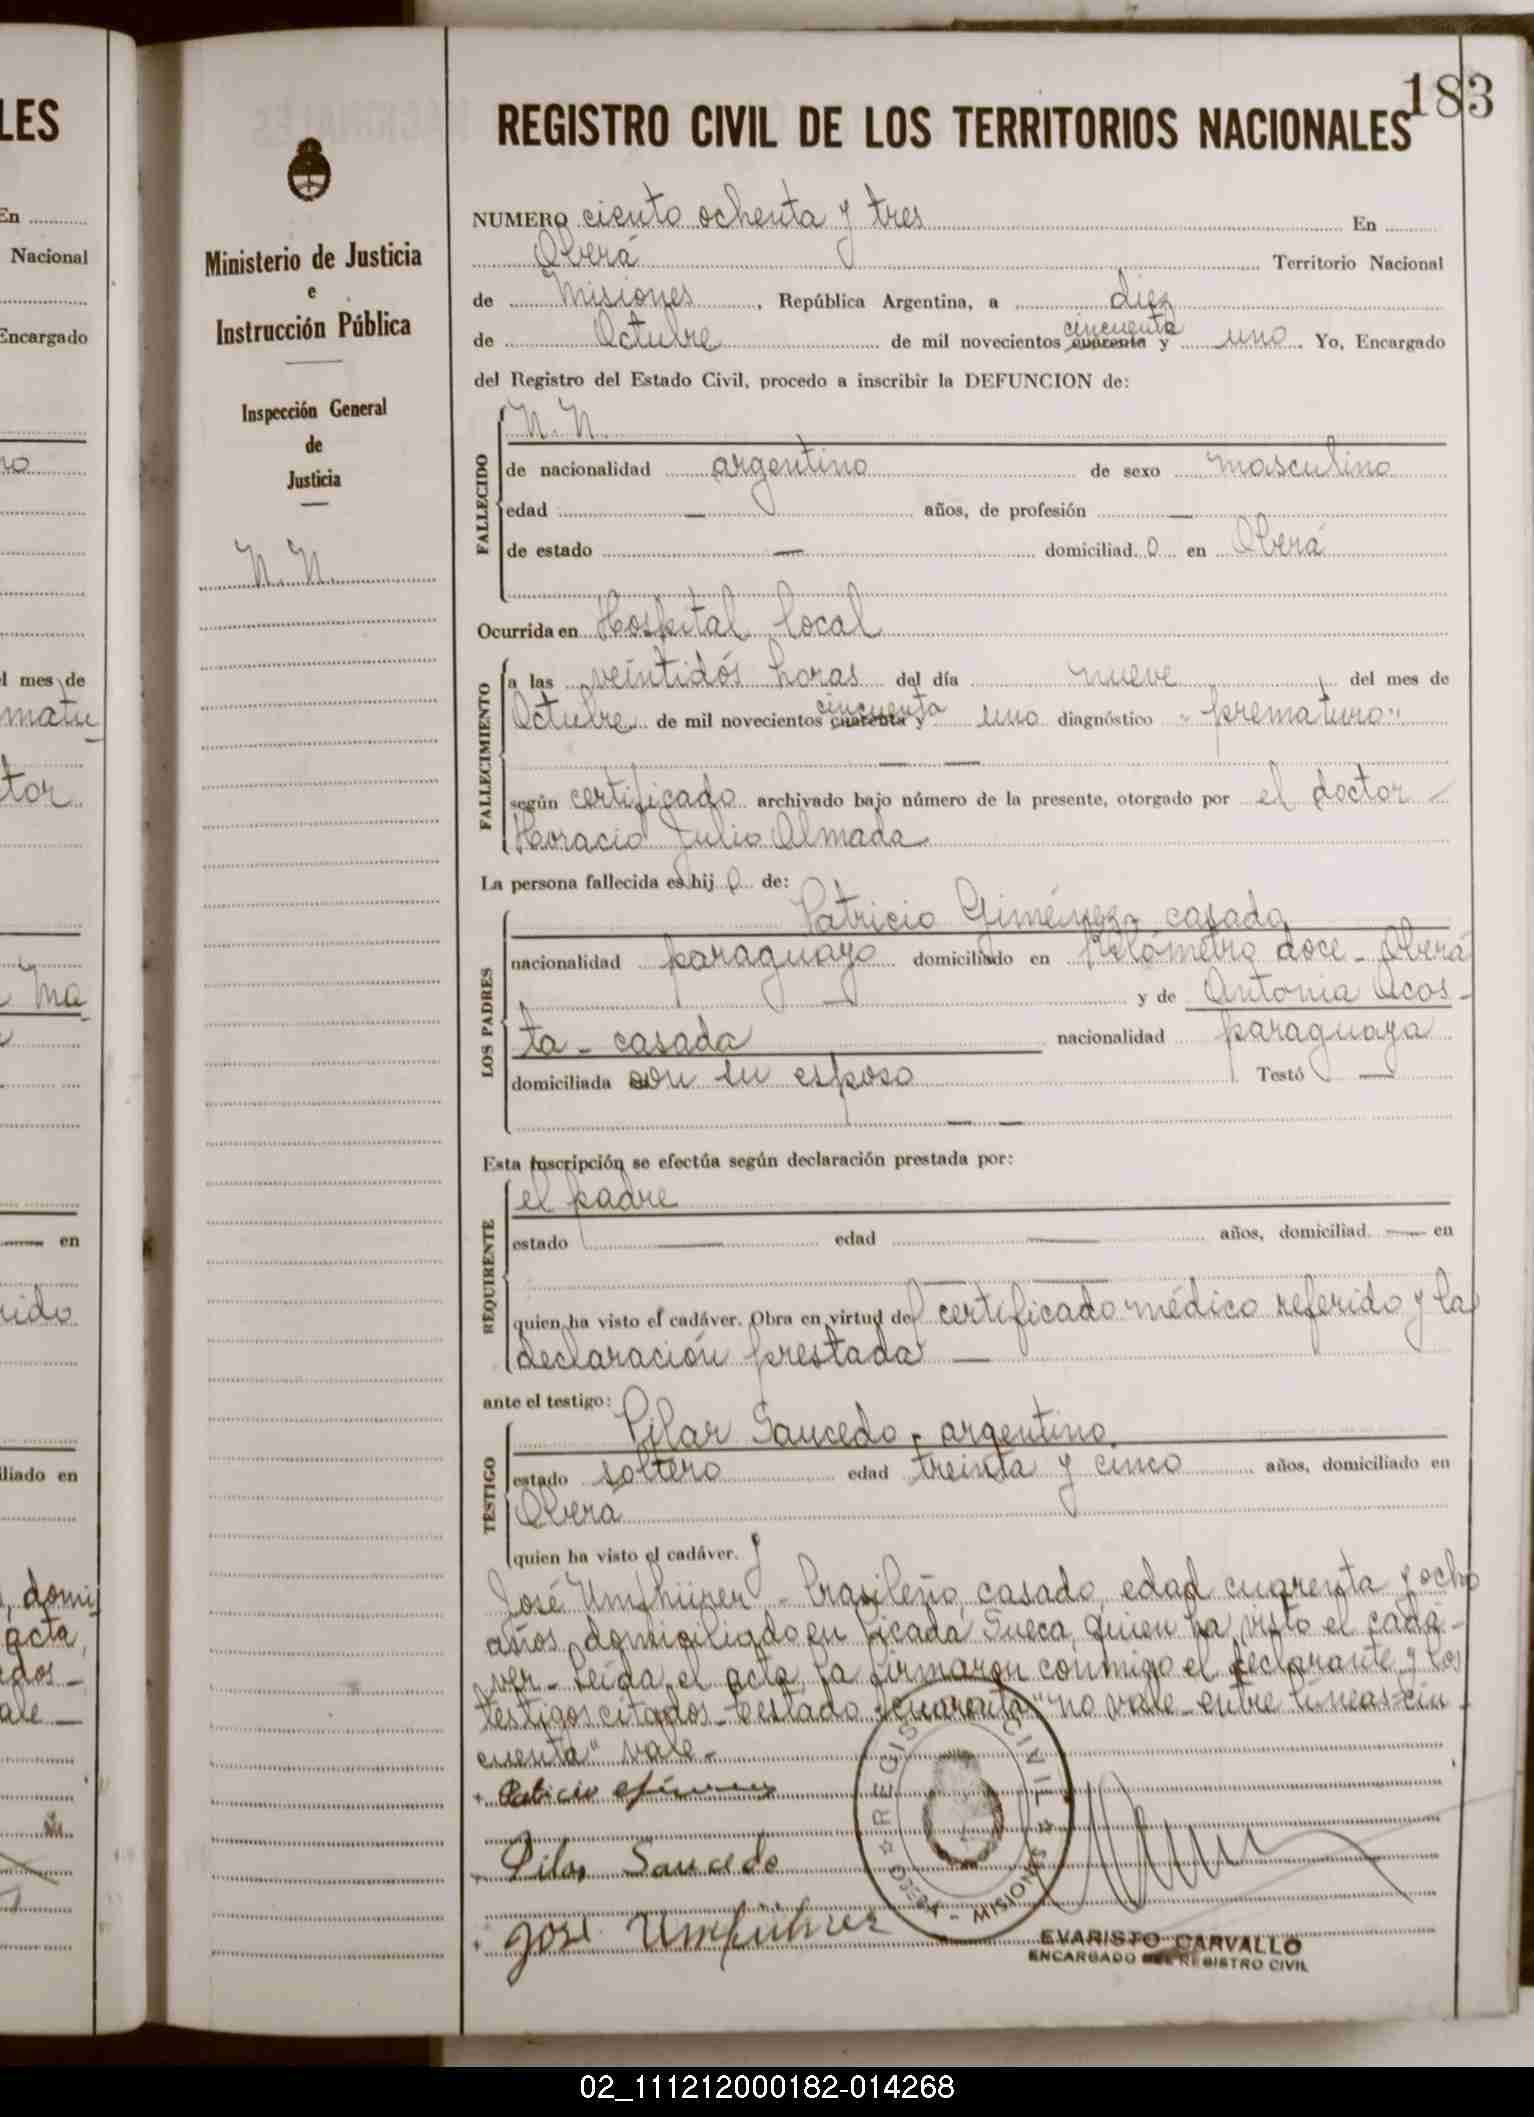 LES
En
Nacional
Encargado
ro
l mes de
matu
tor
Ma
en
rido
iliado en
, domi
acta,
dos
ale
183
REGISTRO CIVIL DE LOS TERRITORIOS NACIONALES
Ministerio de Justicia
e
Instrucción Pública
Inspección General
de
Justicia
N. N.
NUMERO ciento ochenta y tres En
Oberá Territorio Nacional
de Misiones, República Argentina, a diez
de Octubre de mil novecientos cuarenta cincuenta y uno. Yo, Encargado
del Registro del Estado Civil, procedo a inscribir la DEFUNCION de:
FALLECIDO
N. N.
de nacionalidad argentino de sexo masculino
edad — años, de profesión —
de estado — domiciliad o en Oberá
Ocurrida en Hospital local
FALLECIMIENTO
a las veintidós horas del día nueve del mes de
Octubre de mil novecientos cuarenta cincuenta y uno diagnóstico "prematuro"
— —
según certificado archivado bajo número de la presente, otorgado por el doctor
Horacio Julio Almada
La persona fallecida es hij o de:
LOS PADRES
Patricio Giménez casado
nacionalidad paraguayo domiciliado en kilómetro doce - Oberá
— y de Antonia Acos-
ta - casada nacionalidad paraguaya
domiciliada con su esposo Testó —
— —
Esta inscripción se efectúa según declaración prestada por:
REQUIRENTE
el padre
estado — edad — años, domiciliad — en
— —
quien ha visto el cadáver. Obra en virtud del certificado médico referido y la
declaración prestada —
ante el testigo:
TESTIGO
Pilar Saucedo - argentino
estado soltero edad treinta y cinco años, domiciliado en
Oberá
quien ha visto el cadáver. y
José Umfhürer - brasileño, casado, edad cuarenta y ocho
años domiciliado en Picada Sueca, quien ha visto el cadá-
ver - Leída el acta, la firmaron conmigo el declarante y los
testigos citados - testado "cuarenta" no vale - entre líneas "cin-
cuenta" vale -
Patricio Giménez
Pilar Saucedo
José Umführer
REGISTRO CIVIL
OBERÁ - MISIONES
EVARISTO CARVALLO
ENCARGADO DEL REGISTRO CIVIL
02_111212000182-014268